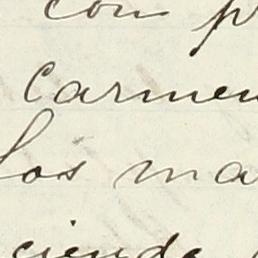 con p
carmen
los ma
ciendo